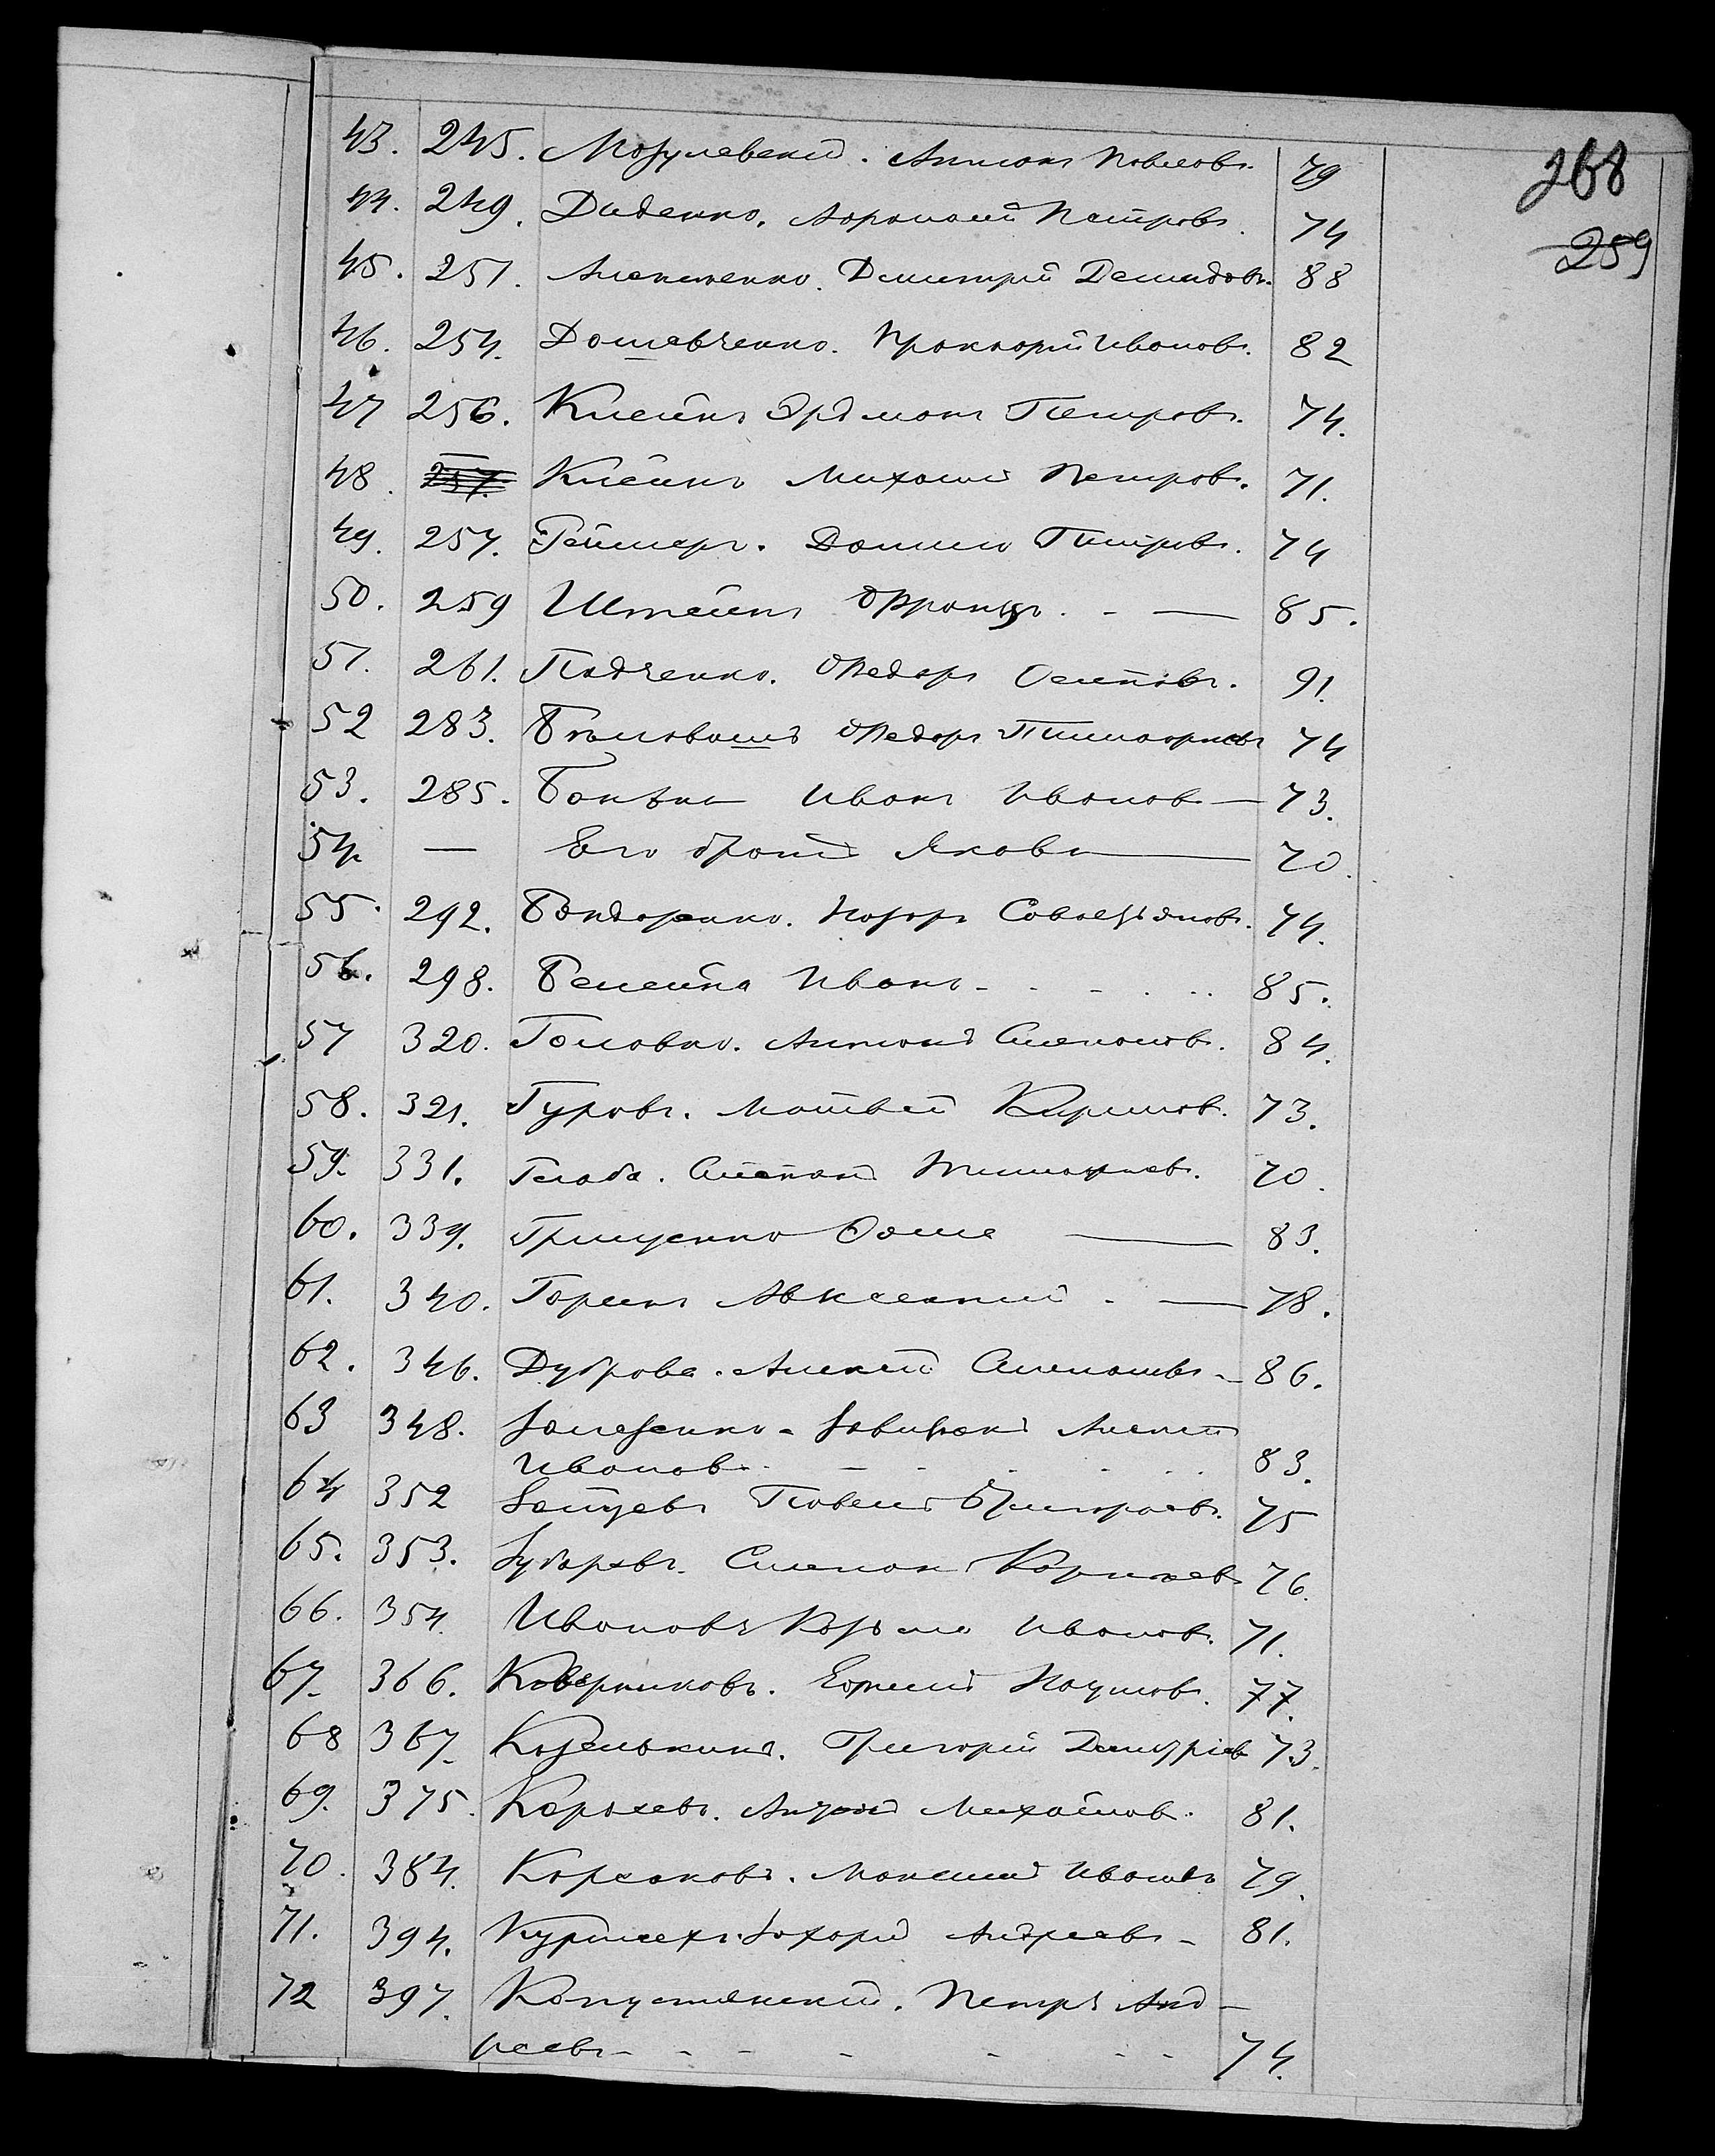 268
259
43. 245. Мозулевскій. Антонъ Павловъ. 79
44. 249. Диденко. Харлампій Петровъ. 74
45. 251. Алексеенко. Дмитрій Демидовъ. 88
46. 254. Домавченко. Прокофій Ивановъ. 82
47 256. Клейнъ Эрдманъ Петровъ. 74.
48. 257. Клейнъ Михаилъ Петровъ. 71.
49. 257. Реймеръ. Данило Петровъ. 74
50. 259 Штейнъ Францъ. - — 85.
51. 261. Падченко. Федоръ Осиповъ. 91.
52 283. Бѣловашъ Федоръ Тимофеевъ 74
53. 285. Банъкы Иванъ Ивановъ — 73.
54. — Его братъ Яковъ — 70.
55. 292. Бондаренко. Назаръ Савостьяновъ. 74.
56. 298. Белейка Иванъ - . . - . .. 85.
57 320. Головко. Антонъ Степановъ. 84.
58. 321. Гуровъ. Матвей Карповъ. 73.
59. 331. Глоба. Степанъ Тимофеевъ. 70.
60. 339. Грищенко Фома — 83.
61. 340. Горинъ Авксентій - — 78.
62. 346. Дуброва. Алексей Степановъ - 86.
63 348. Залезенко - Завизіонъ Алексей
Ивановъ. — . . . .. 83.
64 352 Зайцевъ Павелъ Григорьевъ. 75
65. 353. Зубаревъ. Степанъ Корнеевъ 76.
66. 354. Ивановъ Козьма Ивановъ. 71.
67. 366. Коверниковъ. Ермилъ Наумовъ. 77.
68 367. Козелькинъ. Григорій Дмитріев 73.
69. 375. Карпаевъ. Андрей Михайловъ. 81.
70. 384. Корсаковъ. Максимъ Ивановъ 79.
71. 394. Курилехъ. Захаръ Андреевъ - 81.
72 397. Капустянскій. Петръ Анд-
реевъ - - - - - - - 74.